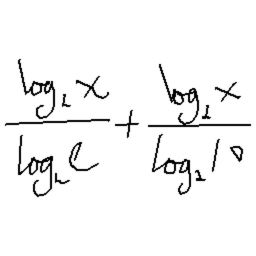 \frac{\log_2 x}{\log_2 e} + \frac{\log_2 x}{\log_2 10}